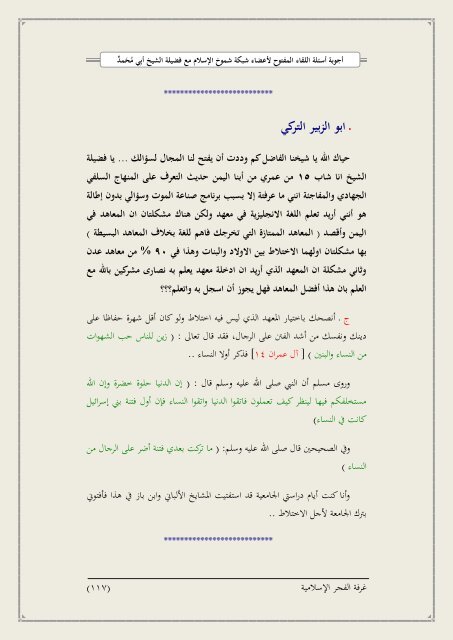 أجوبة أسئلة اللقاء المفتوح لأعضاء شبكة شموخ الإسلام مع فضيلة الشيخ أبي مُحَمَّدٍ
***************************
. ابو الزبير التركي
حياك الله يا شيخنا الفاضل كم وددت أن يفتح لنا المجال لسؤالك ... يا فضيلة
الشيخ انا شاب ١٥ من عمري من أبنا اليمن حديث التعرف على المنهاج السلفي
الجهادي والمفاجئة انني ما عرفتة إلا بسبب برنامج صناعة الموت وسؤالي بدون إطالة
هو أنني أريد تعلم اللغة الانجليزية في معهد ولكن هناك مشكلتان ان المعاهد في
اليمن وأقصد ( المعاهد الممتازة التي تخرجك فاهم للغة بخلاف المعاهد البسيطة )
بها مشكلتان اولهما الاختلاط بين الاولاد والبنات وهذا في ٩٠ % من معاهد عدن
وثاني مشكلة ان المعهد الذي أريد ان ادخلة معهد يعلم به نصارى مشركين بالله مع
العلم بان هذا أفضل المعاهد فهل يجوز أن اسجل به واتعلم؟؟؟
ج . أنصحك باختيار المعهد الذي ليس فيه اختلاط ولو كان أقل شهرة حفاظا على
دينك ونفسك من أشد الفتن على الرجال، فقد قال تعالى : ( زين للناس حب الشهوات
من النساء والبنين ) [ آل عمران ١٤] فذكر أولا النساء ..
وروى مسلم أن النبي صلى الله عليه وسلم قال : ( إن الدنيا حلوة خضرة وإن الله
مستخلفكم فيها لينظر كيف تعملون فاتقوا الدنيا واتقوا النساء فإن أول فتنة بني إسرائيل
كانت في النساء)
وفي الصحيحين قال صلى الله عليه وسلم: ( ما تركت بعدي فتنة أضر على الرجال من
النساء )
وأنا كنت أيام دراستي الجامعية قد استفتيت المشايخ الألباني وابن باز في هذا فأفتوني
بترك الجامعة لأجل الاختلاط ..
***************************
غرفة الفجر الإسلامية (١١٧)